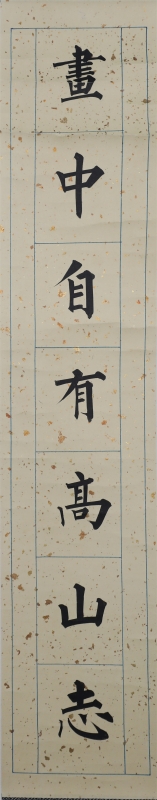 畫中自有高山志